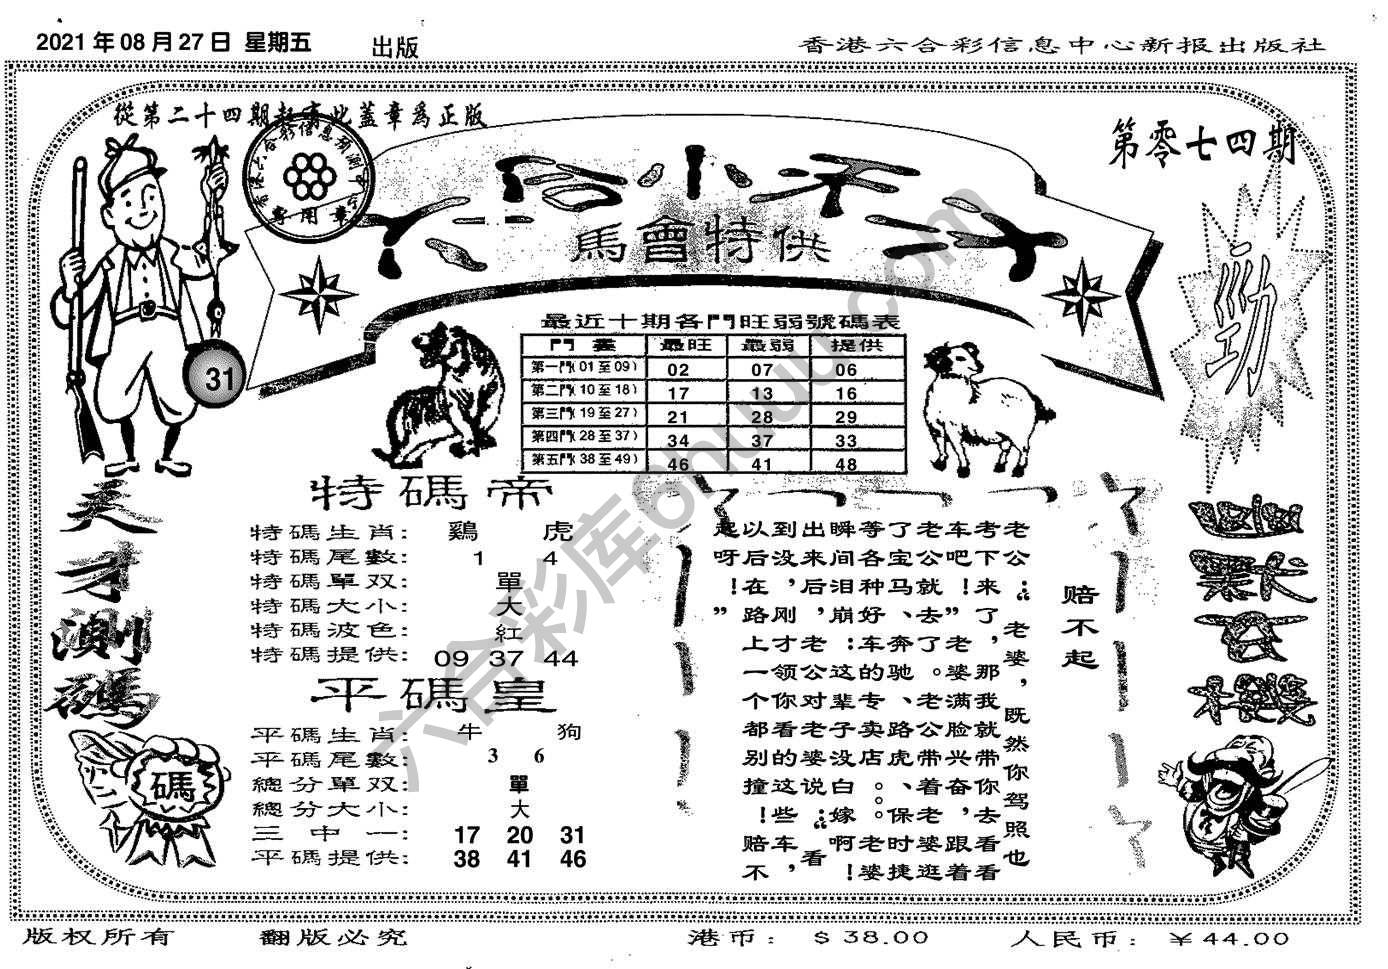 2021 年 08 月 27 日 星期五
出版
香港六合彩信息中心新报出版社
從第二十四期起有此蓋章爲正版
第零七四期
六合小天才
馬會特供
專用章
31
劲
最近十期各門旺弱號碼表
門 最旺 最弱 提供
第一門( 01 至 09 ) 02 07 06
第二門( 10 至 18 ) 17 13 16
第三門( 19 至 27 ) 21 28 29
第四門( 28 至 37 ) 34 37 33
第五門( 38 至 49 ) 46 41 48
天才測碼
碼
特碼帝
特碼生肖: 鷄 虎
特碼尾數: 1 4
特碼單双: 單
特碼大小: 大
特碼波色: 紅
特碼提供: 09 37 44
平碼皇
平碼生肖: 牛 狗
平碼尾數: 3 6
總分單双: 單
總分大小: 大
三中一: 17 20 31
平碼提供: 38 41 46
赔不起
老公：“老婆，既然你驾照也
考下来了，那我就带你去看看
车吧！”老婆满脸兴奋，跟着
老公就去了。老公带着老婆逛
了宝马、奔驰、路虎、保时捷
等各种好车的专卖店。。老婆
瞬间泪崩：这辈子没白嫁啊！
出来后，老公对老婆说：“看
到没，刚才领你看的这些车，
以后在路上一个都别撞！赔不
起呀！”
六合彩库6huuu.com
版权所有 翻版必究 港币: $ 38.00 人民币: ￥ 44.00